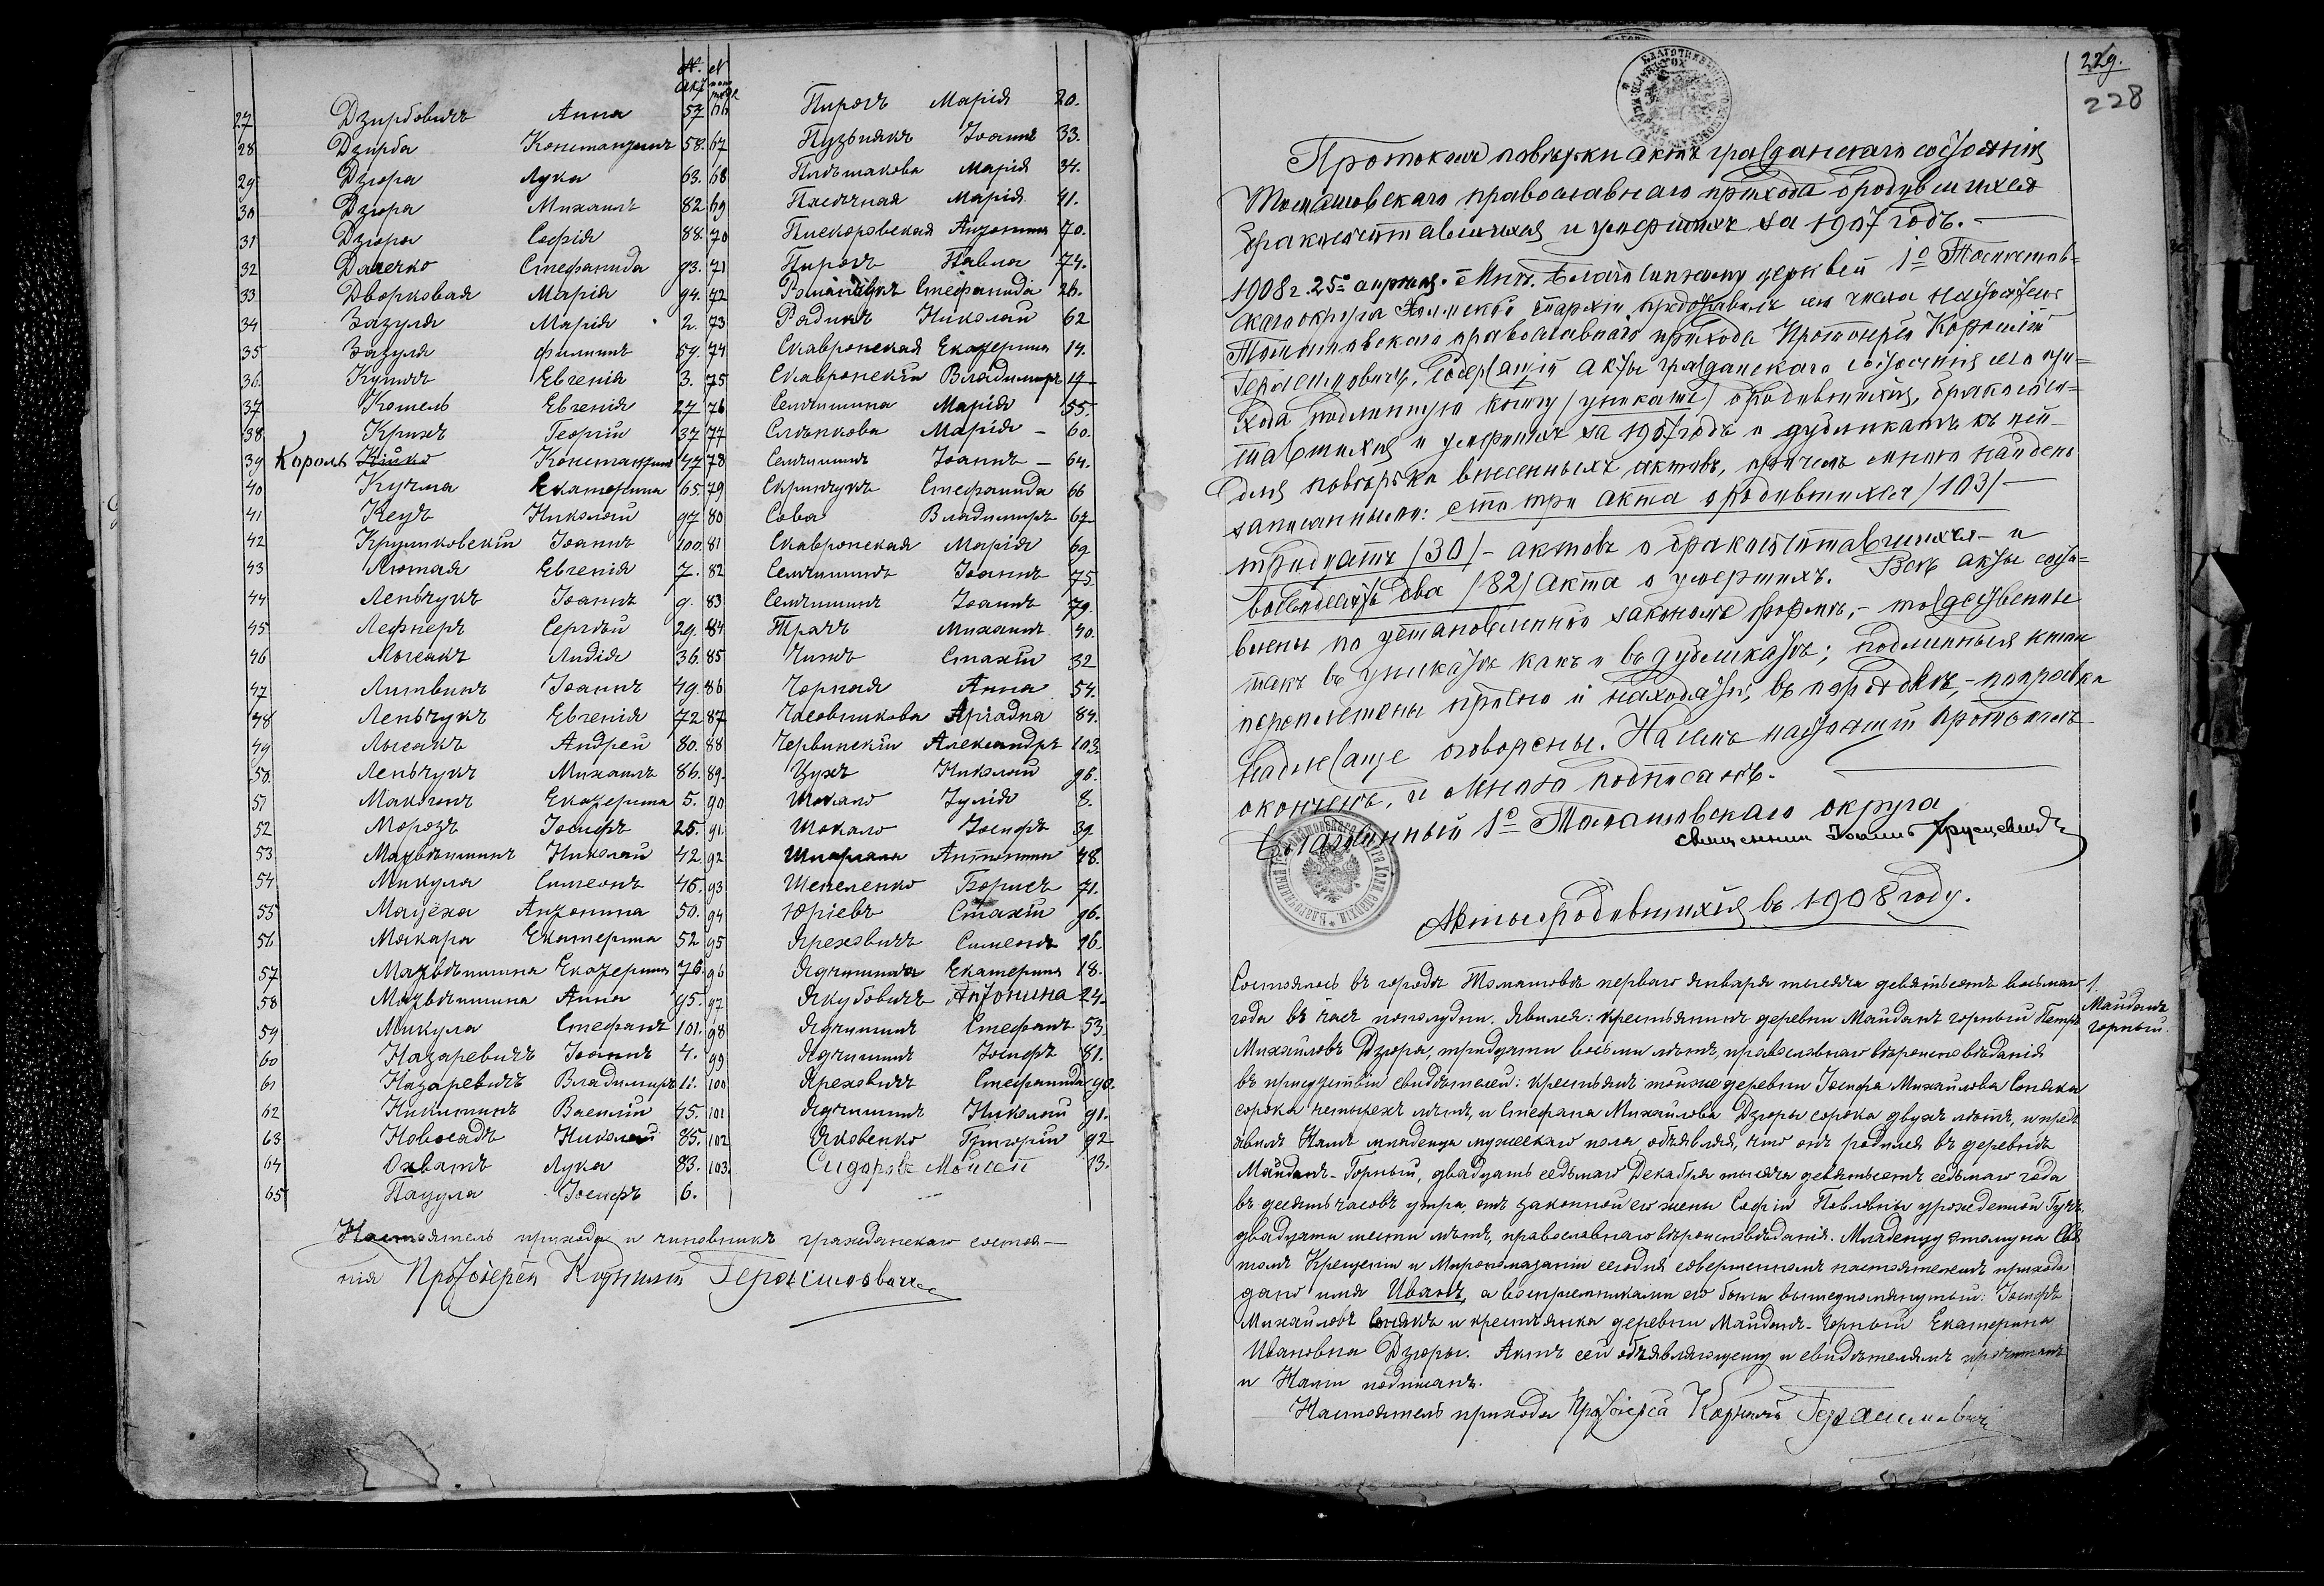 № акт № по порядк
27 Дзирбовичъ Анна 57
28 Дзирба Константинъ 58.
29 Дзюра Лука 63.
30 Дзюра Михаилъ 82
31 Дзюра Софія 88.
32 Данечко Стефанида 93.
33 Дворковая Марія 94.
34 Зазуля Марія 2.
35 Зазуля Филиппъ 59.
36. Евгенія 3.
37 Кошель Евгенія 27
38 Крихъ Георгій 37
39 Король Константинъ 47
40 Кучма Екатерина 65.
41 Кецъ Николай 97
42 Крушковскій Іоаннъ 100.
43 Лютая Евгенія 7.
44 Леньчукъ Іоаннъ 9.
45 Лефнеръ Сергѣй 29.
46 Лысакъ Лидія 36.
47 Литвинъ Іоаннъ 49.
48 Леньчукъ Евгенія 72
49 Лысакъ Андрей 80.
50. Леньчукъ Михаилъ 86.
51 Макогонъ Екатерина 5.
52 Морозъ Іосифъ 25.
53 Матвѣишинъ Николай 42
54 Микула Симеонъ 46.
55 Мацёха Антонина 50.
56 Мокара Екатерина 52
57 Матвѣишина Екатерина 76.
58 Матвѣишина Анна 95.
59 Микула Стефанъ 101.
60 Назаревичъ Іоаннъ 4.
61 Назаревичъ Владимиръ 11.
62 Никитинъ Василій 45.
63 Новосадъ Николай 85.
64 Охватъ Лука 83.
65 Пацула Іосифъ 6.
66 Пирогъ Марія 20.
67 Пузнякъ Іоаннъ 33.
68 Марія 34.
69 Песочная Марія 41.
70 Пискоровская Антонина 70.
71 Пирогъ Павла 74.
72 Стефанида 26.
73 Радикъ Николай 62
74 Скавронская Екатерина 14.
75 Скавронскій Владимиръ
76 Семчишина Марія 55.
77 Слѣпкова Марія – 60.
78 Семчишинъ Іоаннъ – 64.
79 Скринчукъ Стефанида 66
80 Сова Владимиръ 67
81 Скавронская Марія 69
82 Семчишинъ Іоаннъ 75.
83 Семчишинъ Іоаннъ 79.
84 Трачъ Михаилъ 40.
85 Чижъ Стахій 32
86 Чорная Анна 54.
87 Часовникова Аріадна 84.
88 Червинскій Александръ 103.
89. Цухъ Николай 96.
90 Шокало Іулія 8.
91. Шокало Іосифъ 39
92 Антонина 48.
93 Шепеленко Борисъ 71.
94 Юріевъ Стахій 96.
95 Яреховичъ Симеонъ 16.
96 Ядчишина Екатерина 18.
97 Якубовичъ Антонина 24.
98 Ядчишинъ Стефанъ 53.
99 Ядчишинъ Іосифъ 81.
100 Яреховичъ Стефанида 90.
101 Ядчишинъ Николай 91.
102 Яковенко Григорій 92
103. Сидоровъ Моисей 13.
Настоятель прихода и чиновникъ гражданскаго состоя-
нія Протоіерей Корнилій Герасимовичъ
229.
228
Протоколъ повѣрки актъ гражданскаго состоянія
Томашовскаго православнаго прихода о родившихся
бракосочетавшихся и умершихъ за 1907 годъ. –
1908 г. 25го апрѣля. Мнѣ, Благочинному церквей 1о Томашов-
скаго округа Холмской епархіи, предоставилъ сего числа настоятель
Томашовскаго православнаго прихода Протоіерей Корнилій
Герасимовичъ, содержащій акты гражданскаго состоянія сего при-
хода подлинную книгу /уникатъ/ о родившихся, бракосоче-
тавшихся и умершихъ за 1907 годъ и дубликатъ къ ней
для повѣрки внесенныхъ актовъ, причемъ мною найдены
записанными: сто три акта о родившихся /103/ –
тридцать /30/ – актовъ о бракосочетавшихся – и
восемьдесятъ два /82/ акта о умершихъ. Всѣ акты соста-
влены по установленной закономъ формѣ, – тождественны
такъ въ уникатѣ какъ и въ дубликатѣ; подлинныя книги
переплетены прочно и находятся въ порядкѣ, – поправки
надлежаще оговорены. На семъ настоящій протоколъ
оконченъ, и мною подписанъ.
Благочинный 1о Томашовскаго округа
священникъ Іоаннъ
Акты о родившихся въ 1908 году.
1. Майданъ горный.
Состоялось въ городѣ Томашовѣ перваго января тысяча девятьсотъ восьмаго
года въ часъ пополудни. Явился: крестьянинъ деревни Майданъ горный Петръ
Михайловъ Дзюра, тридцати восьми лѣтъ, православнаго вѣроисповѣданія
въ присутствіи свидѣтелей: крестьянъ тойже деревни Іосифа Михайлова Соняка
сорока четырехъ лѣтъ, и Стефана Михайлова Дзюры сорока двухъ лѣтъ, и предъ
явилъ Намъ младенца мужескаго пола объявляя, что онъ родился въ деревнѣ
Майданъ-Горный, двадцать седьмаго Декабря тысяча девятьсотъ седьмаго года
въ десять часовъ утра, отъ законной его жены Софіи Павловны урожденной Гуцъ,
двадцати шести лѣтъ, православнаго вѣроисповѣданія. Младенцу этому на Свя
томъ Крещеніи и Миропомазаніи сегодня совершенномъ настоятелемъ прихода
дано имя Иванъ, а воспріемниками его были вышеупомянутый: Іосифъ
Михайловъ Сонякъ и крестьянка деревни Майданъ-Горный Екатерина
Ивановна Дзюры. Актъ сей объявляющему и свидѣтелямъ прочитанъ
и Нами подписанъ.
Настоятель прихода Протоіерей Корнилій Герасимовичъ